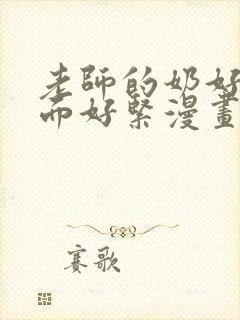 老師的奶好
而好緊漫畫
賽歌